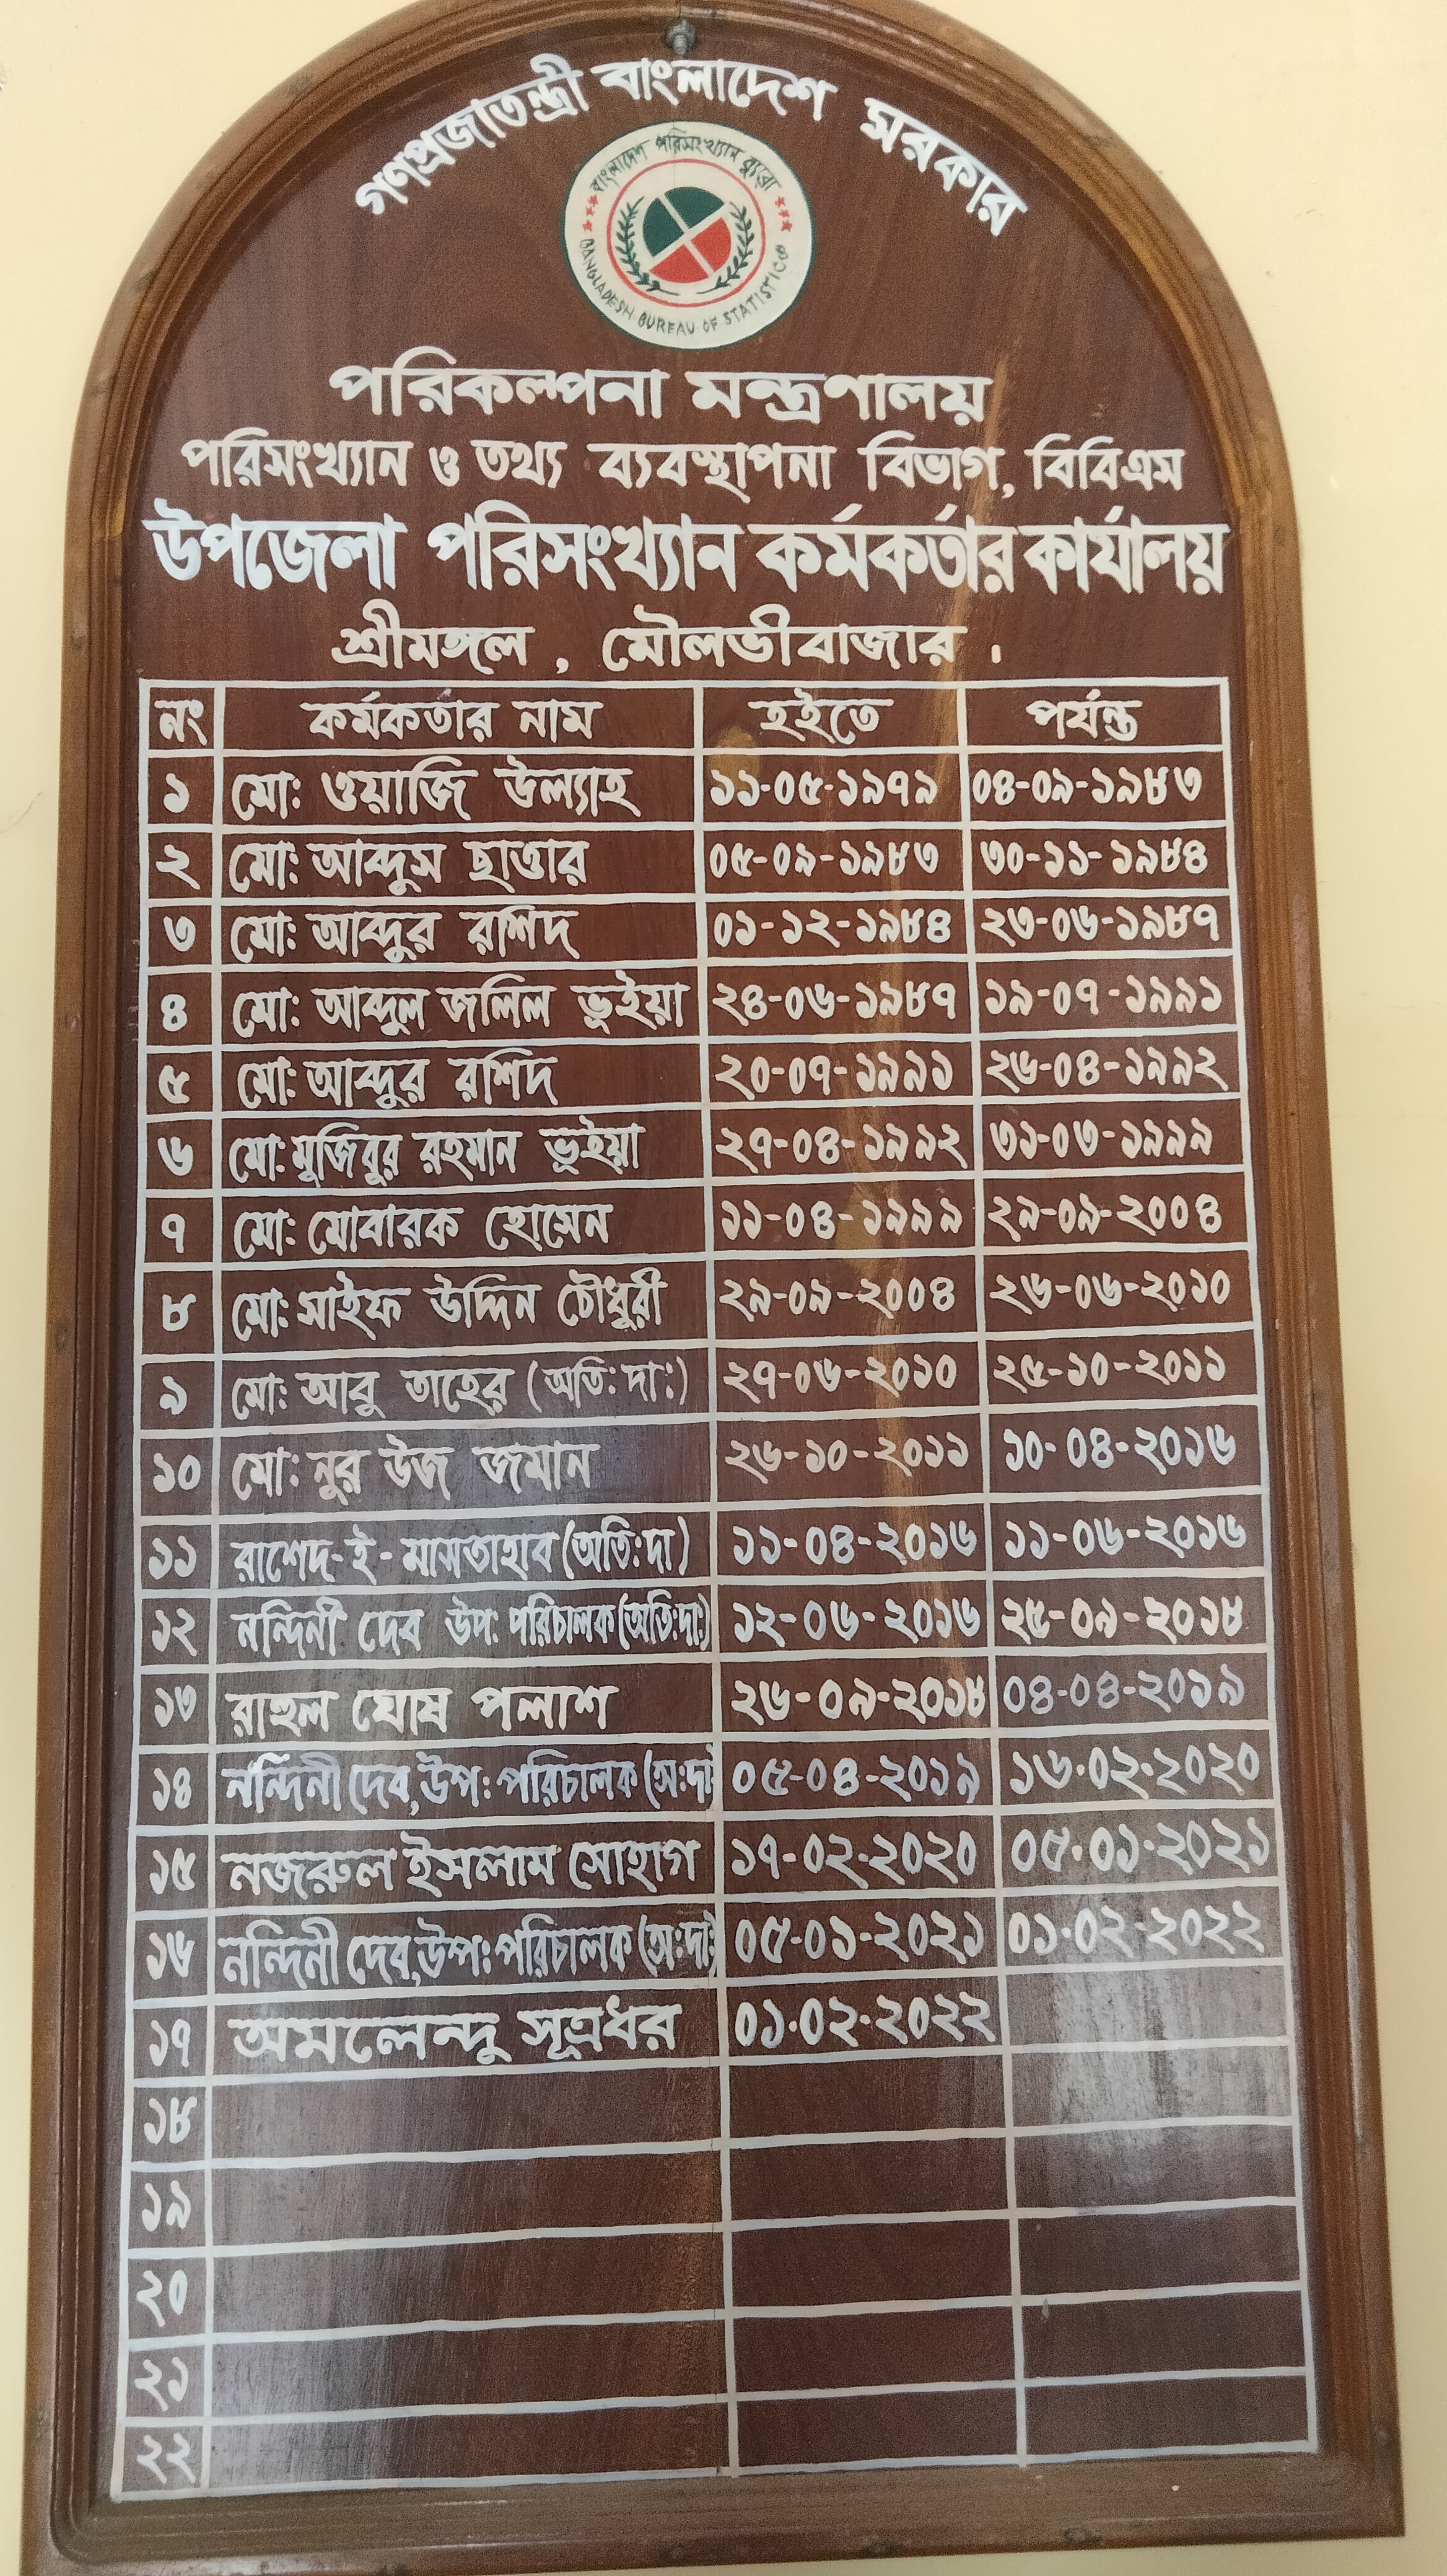 গণপ্রজাতন্ত্রী বাংলাদেশ সরকার
বাংলাদেশ পরিসংখ্যান ব্যুরো
BANGLADESH BUREAU OF STATISTICS
পরিকল্পনা মন্ত্রণালয়
পরিসংখ্যান ও তথ্য ব্যবস্থাপনা বিভাগ, বিবিএস
উপজেলা পরিসংখ্যান কর্মকর্তার কার্যালয়
শ্রীমঙ্গল , মৌলভীবাজার ।
নং কর্মকর্তার নাম হইতে পর্যন্ত
১ মো: ওয়াজি উল্যাহ ১১-০৫-১৯৭৯ ০৪-০৯-১৯৮৩
২ মো: আব্দুস ছাত্তার ০৫-০৯-১৯৮৩ ৩০-১১-১৯৮৪
৩ মো: আব্দুর রশিদ ০১-১২-১৯৮৪ ২৩-০৬-১৯৮৭
৪ মো: আব্দুল জলিল ভূইয়া ২৪-০৬-১৯৮৭ ১৯-০৭-১৯৯১
৫ মো: আব্দুর রশিদ ২০-০৭-১৯৯১ ২৬-০৪-১৯৯২
৬ মো: মুজিবুর রহমান ভূইয়া ২৭-০৪-১৯৯২ ৩১-০৩-১৯৯৯
৭ মো: মোবারক হোসেন ১১-০৪-১৯৯৯ ২৯-০৯-২০০৪
৮ মো: সাইফ উদ্দিন চৌধুরী ২৯-০৯-২০০৪ ২৬-০৬-২০১০
৯ মো: আবু তাহের (অতি:দা:) ২৭-০৬-২০১০ ২৫-১০-২০১১
১০ মো: নুর উজ জমান ২৬-১০-২০১১ ১০-০৪-২০১৬
১১ রাশেদ-ই-মাসতাহাব (অতি:দা) ১১-০৪-২০১৬ ১১-০৬-২০১৬
১২ নন্দিনী দেব উপ: পরিচালক (অতি:দা:) ১২-০৬-২০১৬ ২৫-০৯-২০১৮
১৩ রাহুল ঘোষ পলাশ ২৬-০৯-২০১৮ ০৪-০৪-২০১৯
১৪ নন্দিনী দেব, উপ: পরিচালক (অ:দা) ০৫-০৪-২০১৯ ১৬.০২.২০২০
১৫ নজরুল ইসলাম সোহাগ ১৭-০২-২০২০ ০৫.০১.২০২১
১৬ নন্দিনী দেব, উপ: পরিচালক (অ:দা:) ০৫-০১-২০২১ ০১.০২.২০২২
১৭ অমলেন্দু সূত্রধর ০১.০২.২০২২
১৮
১৯
২০
২১
২২